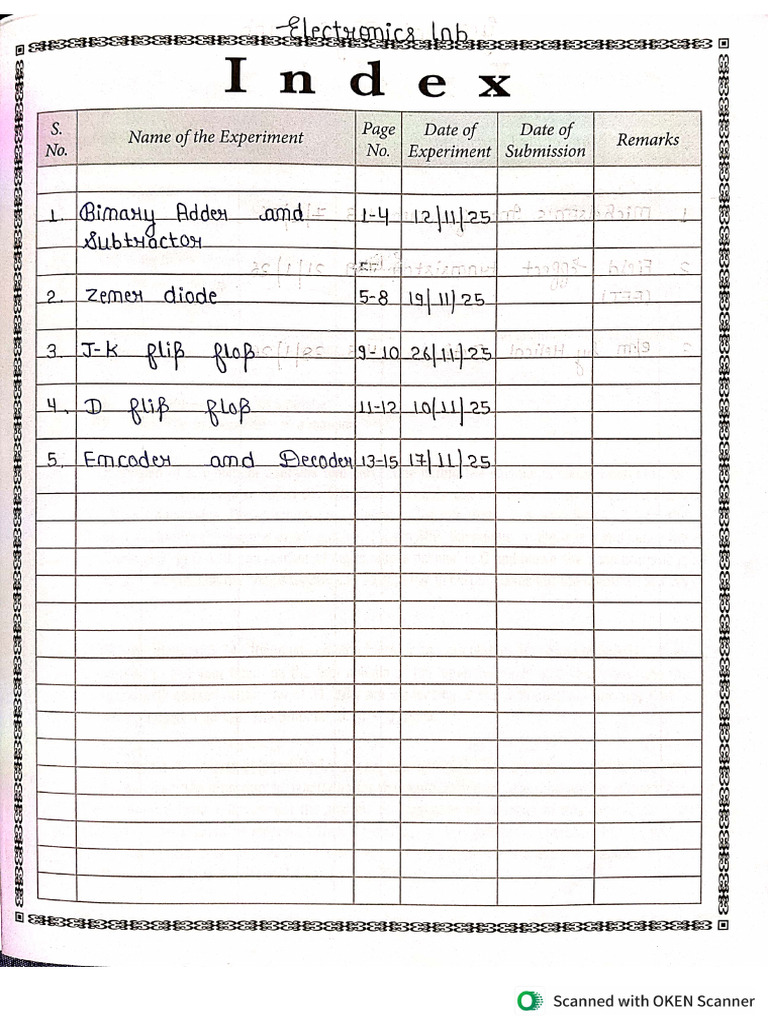 Electronics Lab
Index
S. No. Name of the Experiment Page No. Date of Experiment Date of Submission Remarks
1. Binary Adder and 1-4 12/11/25
Subtractor
2. Zener diode 5-8 19/11/25
3. J-K flip flop 9-10 26/11/25
4. D flip flop 11-12 10/11/25
5. Encoder and Decoder 13-15 17/11/25
Scanned with OKEN Scanner